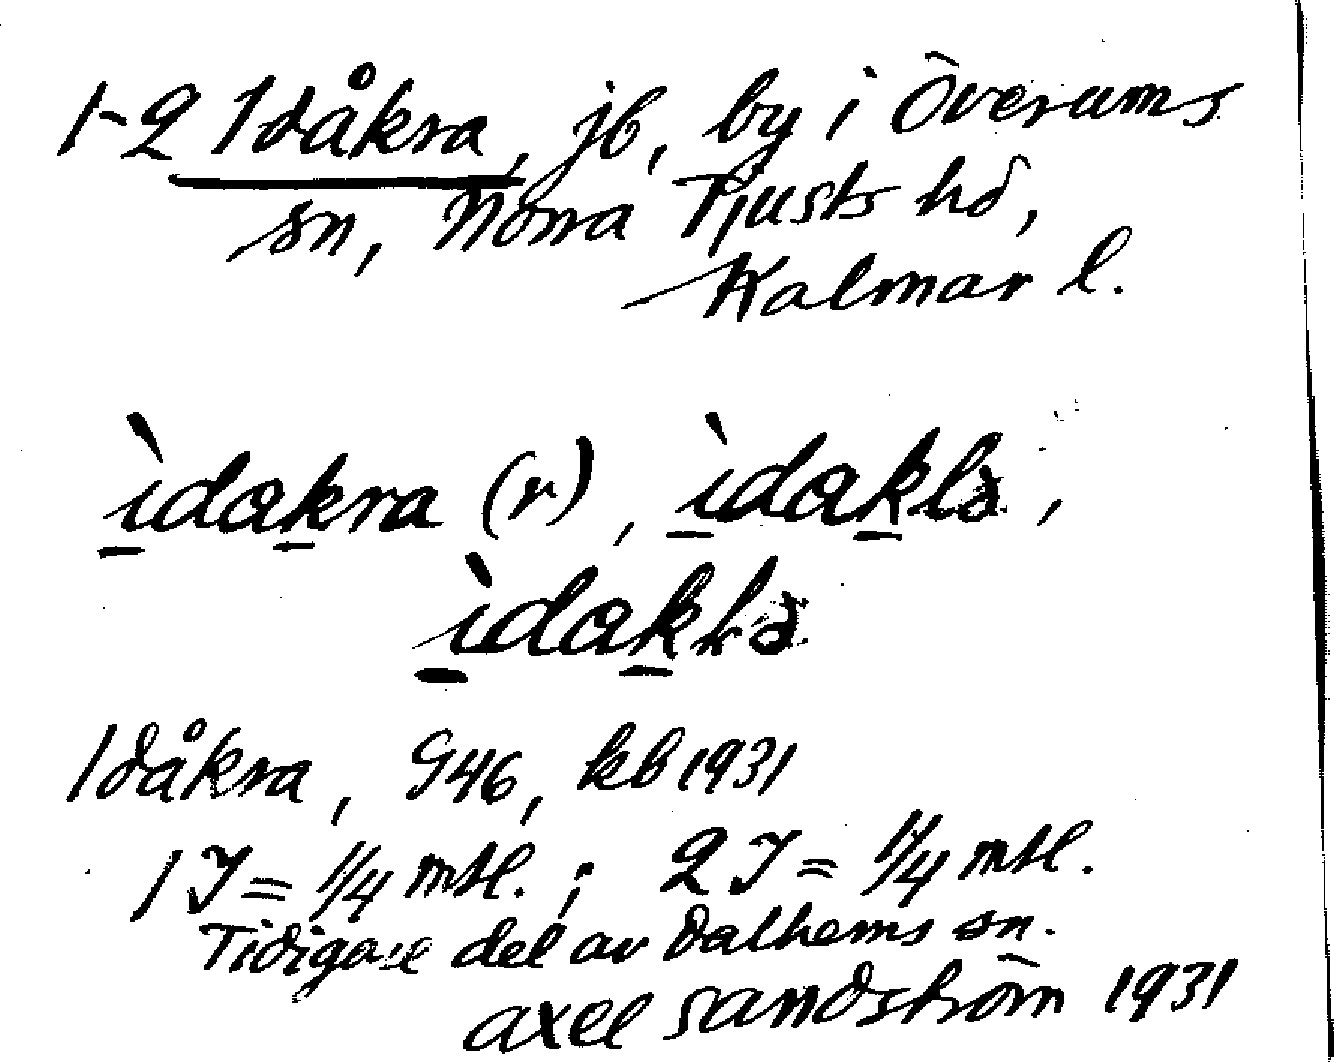 1-2 Idåkra, jb, by i Överums
sn, Norra Tjusts hd,
Kalmar l.
ìdakra (r), ìdaklə,
ìdakkə
Idåkra, G46, kb 1931
1 J = 1/4 mtl. ; 2 J = 1/4 mtl.
Tidigare del av Dalhems sn.
Axel Sandström 1931